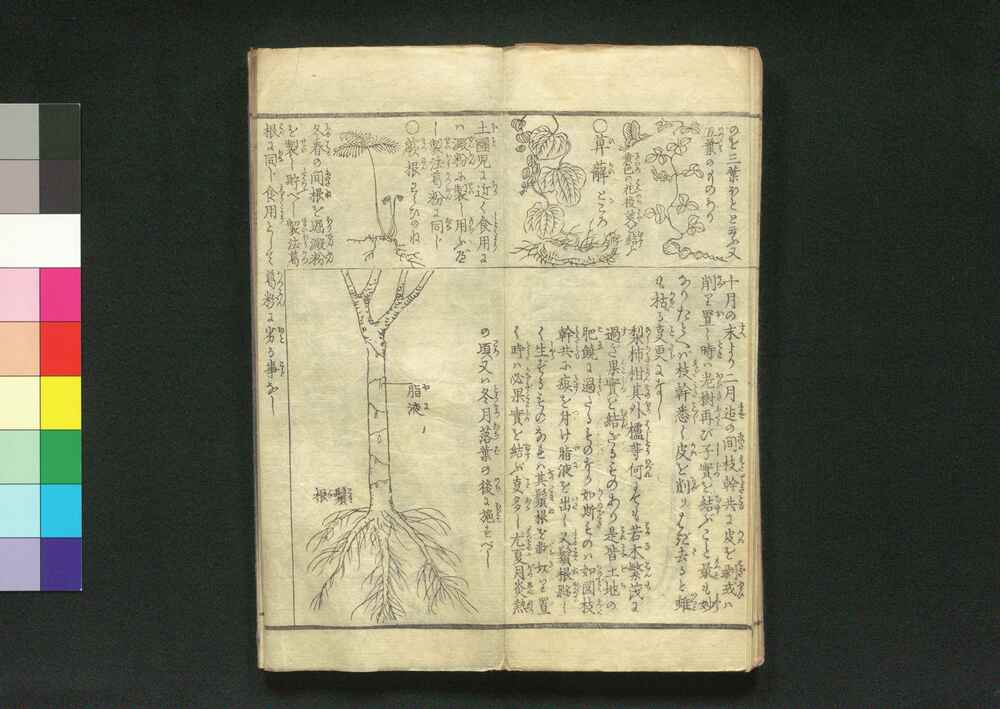 のを三葉をとゝきふ又
五葉のものあり
黄色の花後莢を結ぶ
○萆薢ところ
土圞児に近く食用に
ハ澱粉に製し用ふべ
し製法葛粉に同じ
○蕨根わらびのね
冬春の間根を堀澱粉
を製し貯べし製法葛
根に同じ食用として葛粉に劣る事なし
十月の末より二月迄の間枝幹共に皮を剥或ハ
削り置し時ハ老樹再び子實を結ぶこと最も妙
ありたとへバ枝幹悉く皮を削りはぎ去ると雖
も枯る事更になし
梨柿柑其外櫨等何にても若木繁茂に
過ぎ果實を結ばざるものあり是皆土地の
肥饒に過たるものなり如斯ものハ如図枝
幹共に痕を付け脂液を出し又鬚根
く生ぜるものあれバ其鬚根を截り置
く時ハ必果實を結ぶ事多し尤夏月炎熱
の頃又ハ冬月落葉の後に施すべし
脂液
鬚根